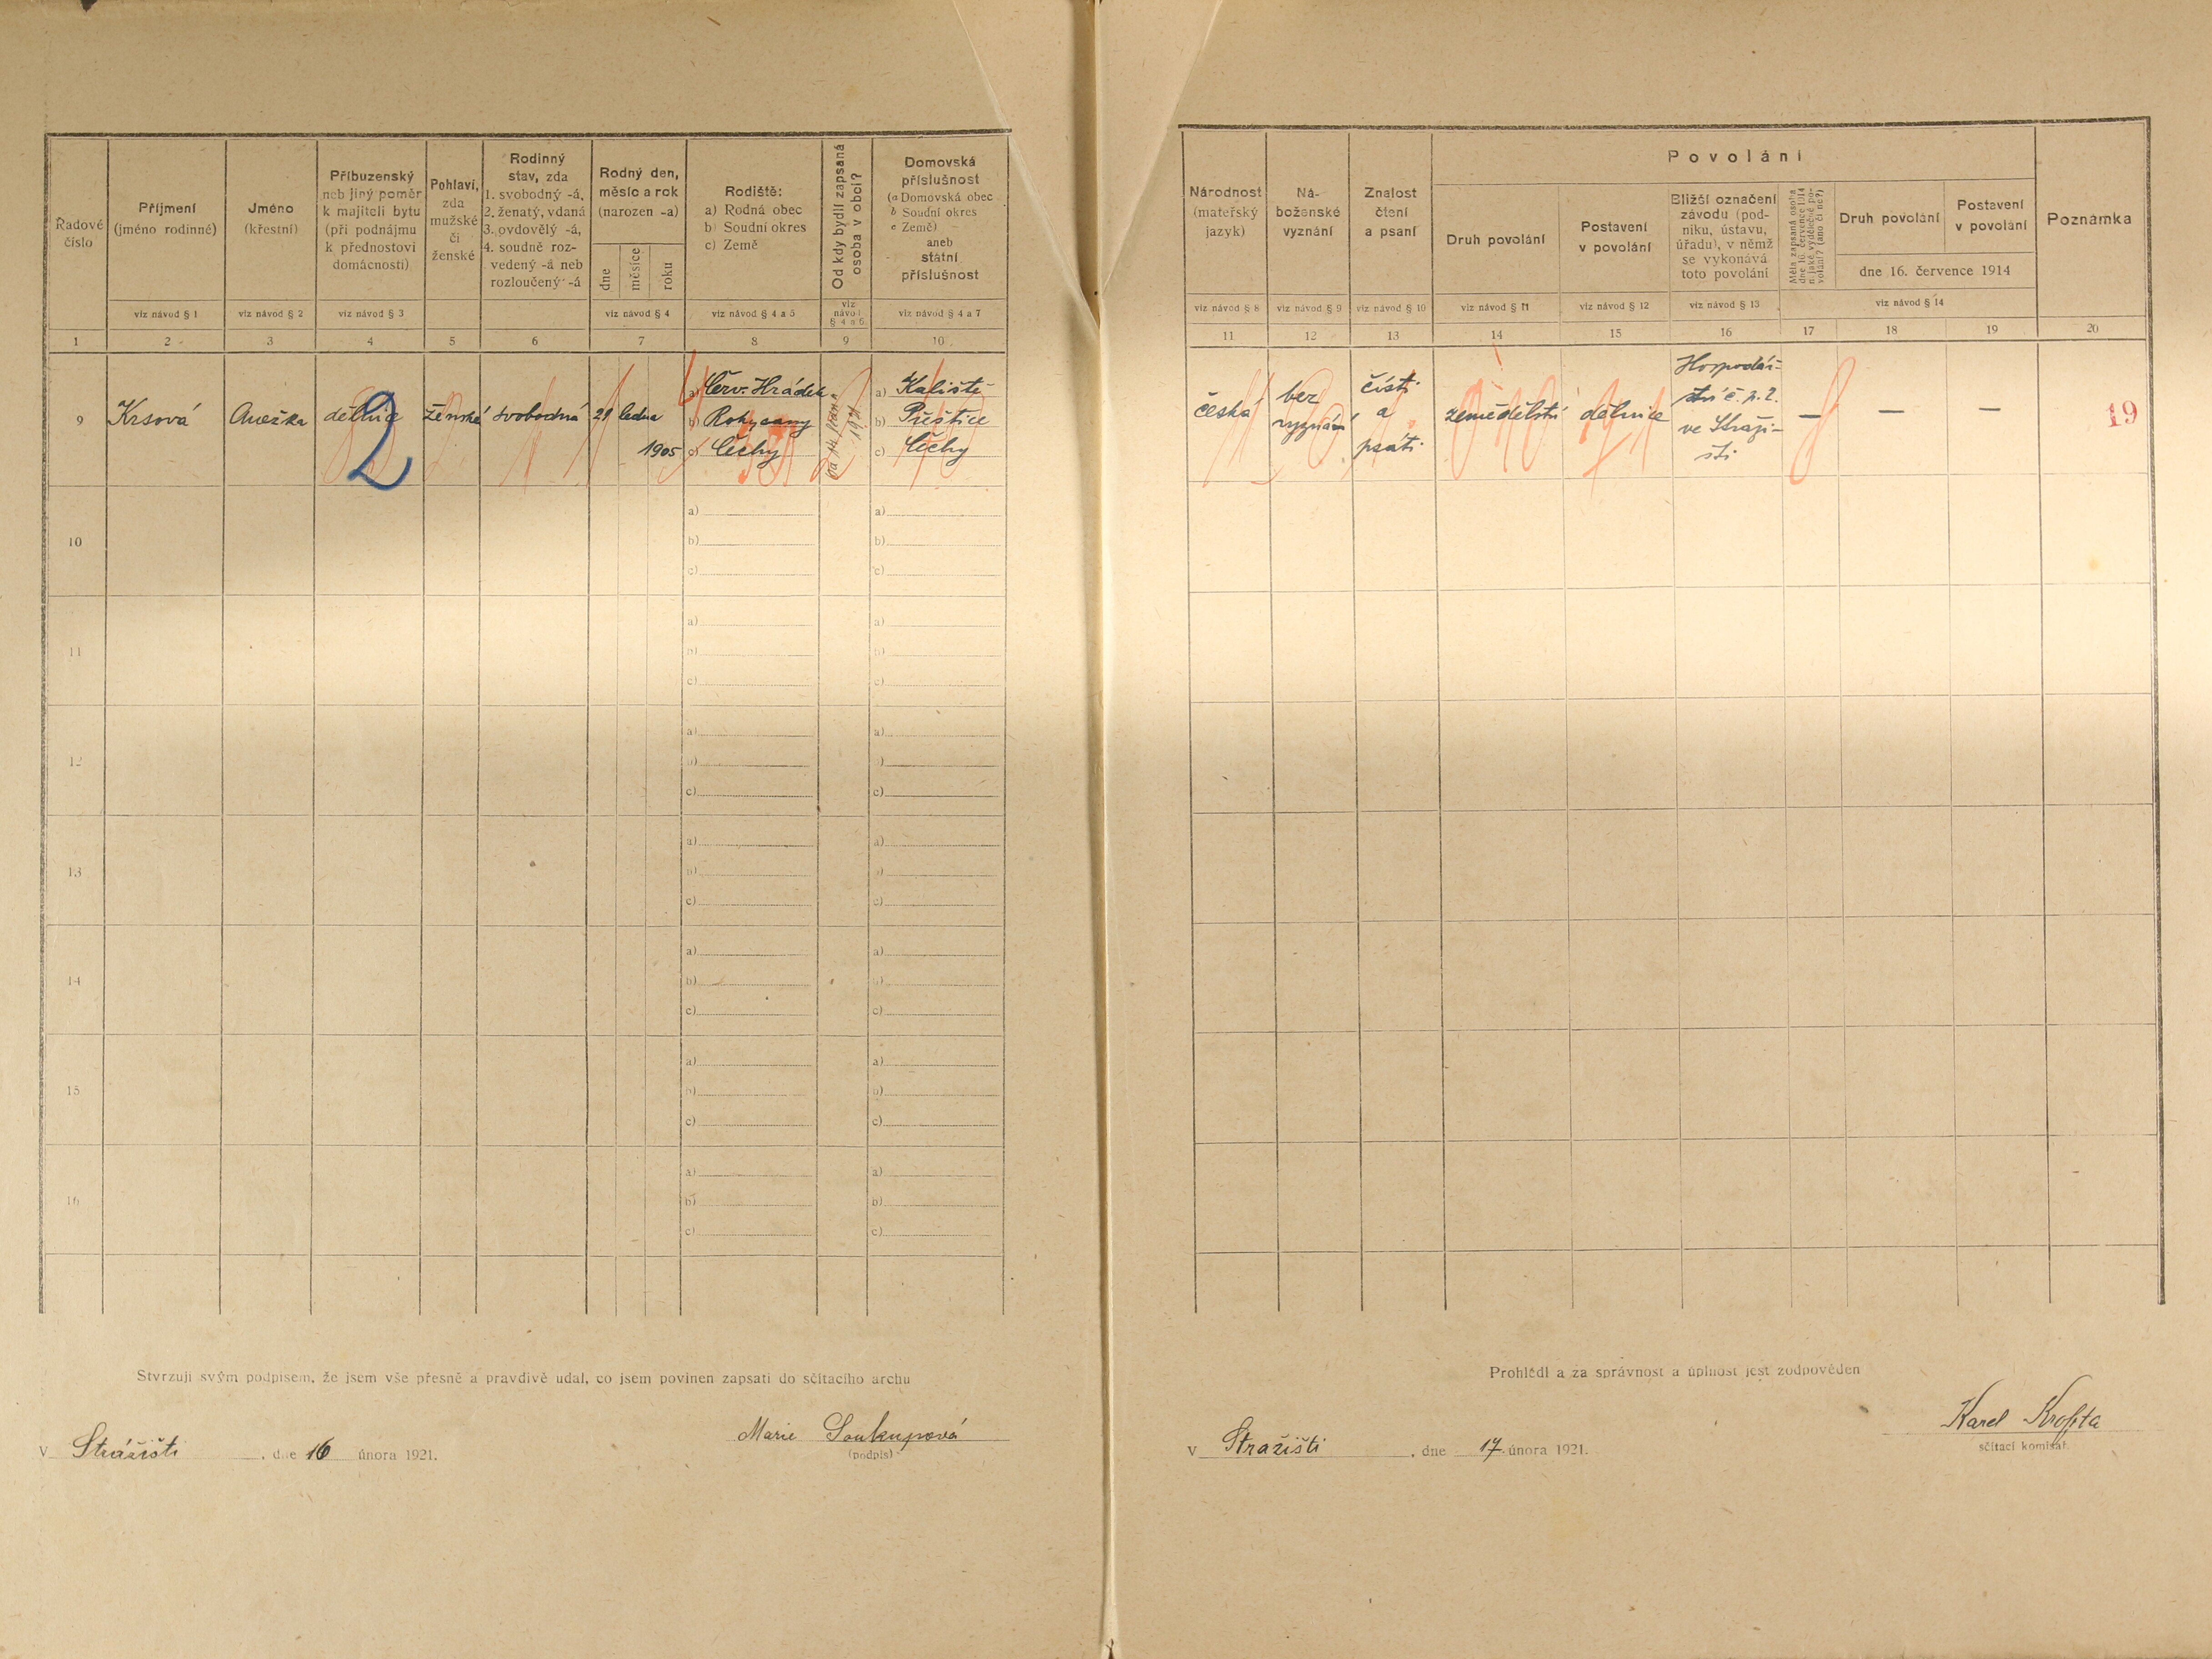 Řadové číslo
Příjmení
(jméno rodinné)
viz návod § 1
Jméno
(křestní)
viz návod § 2
Příbuzenský
neb jiný poměr
k majiteli bytu
(při podnájmu
k přednostovi
domácnosti)
viz návod § 3
Pohlaví,
zda
mužské
či
ženské
Rodinný
stav, zda
1. svobodný -á,
2. ženatý, vdaná
3. ovdovělý -á,
4. soudně roz-
vedený -á neb
rozloučený -á
Rodný den,
měsíc a rok
(narozen -a)
dne
měsíce
roku
viz návod § 4
Rodiště:
a) Rodná obec
b) Soudní okres
c) Země
viz návod § 4 a 5
Od kdy bydlí zapsaná
osoba v obci?
viz
návod
§ 4 a 6
Domovská
příslušnost
(a Domovská obec
b Soudní okres
c Země)
aneb
státní
příslušnost
viz návod § 4 a 7
1 2 3 4 5 6 7 8 9 10
9 Krsová Anežka dělnice ženské svobodná 29 ledna
1905
a) Červ. Hrádek
b) Rokycany
c) Čechy
a) Kaliště
b) Přeštice
c) Čechy
2
10
a) a)
b) b)
c) c)
11
a) a)
b) b)
c) c)
12
a) a)
b) )
c) c)
13
a) a)
b) b)
c) c)
14
a) a)
b) b)
c) c)
15
a) a)
b) b)
c) c)
16
a) a)
b) b)
c) c)
Stvrzuji svým podpisem, že jsem vše přesně a pravdivě udal, co jsem povinen zapsati do sčítacího archu
V Strážišti, dne 16 února 1921.
Marie Soukupová
(podpis)
Národnost
(mateřský
jazyk)
viz návod § 8
Ná-
boženské
vyznání
viz návod § 9
Znalost
čtení
a psaní
viz návod § 10
Povolání
Druh povolání
viz návod § 11
Postavení
v povolání
viz návod § 12
Bližší označení
závodu (pod-
niku, ústavu,
úřadu), v němž
se vykonává
toto povolání
viz návod § 13
Měla zapsaná osoba
dne 16. července 1914
nějaké výdělečné po-
volání? (ano či ne?)
Druh povolání
Postavení
v povolání
dne 16. července 1914
viz návod § 14
Poznámka
11 12 13 14 15 16 17 18 19 20
česká
bez
vyznání
čísti
a
psáti
zemědělství
dělnice
Hospodář-
ství č. p. 2.
ve Stráži-
šti
— — —
19
Prohlédl a za správnost a úplnost jest zodpověden
V Stražišti, dne 17. února 1921.
Karel Krofta
sčítací komisař.